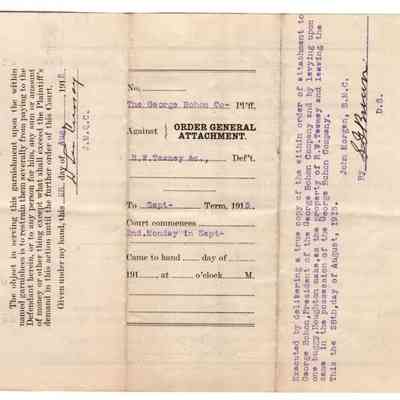 The object in serving this garnishment upon the within
named garnishees is to restrain them severally from paying to the
Defendant herein, or to any person for him, any sum or amount
of money or other thing except what shall exceed the Plaintiff's
demand in this action until the further order of this Court.
Given under my hand, this day of Aug 191
No.
The George Bohon Co- Pl'ff,
Against } ORDER GENERAL
ATTACHMENT.
R.W.Tewney &c., Def't.
To Sept- Term, 1915.
Court commences
2nd.Monday in Sept-
Came to hand day of
191 , at o'clock M.
Executed by delivering a true copy of the within order of attachment to
George Bohon,President of the George Bohon Company and by levying upon
one buggy,Houghton make,as the property of R.W.Tewney and leaving the
same in the possession of the George Bohon Company.
This the 28th,day of August, 1915.
John S.M.C.
By
D.S.